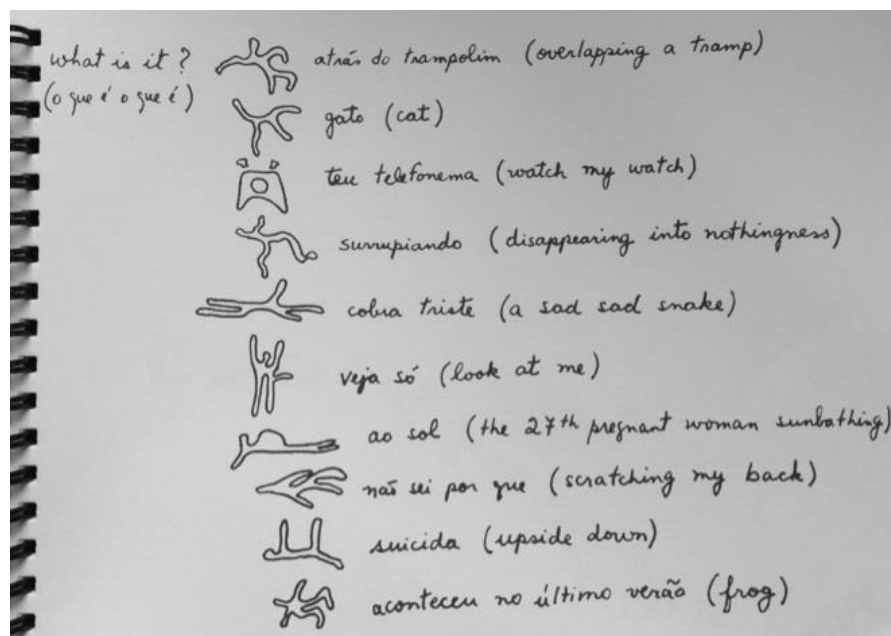 what is it?
(o que é o que é)
atrás do trampolim (overlapping a tramp)
gato (cat)
teu telefonema (watch my watch)
surrupiando (disappearing into nothingness)
cobra triste (a sad sad snake)
veja só (look at me)
ao sol (the 27th pregnant woman sunbathing)
não sei por que (scratching my back)
suicida (upside down)
aconteceu no último verão (frog)